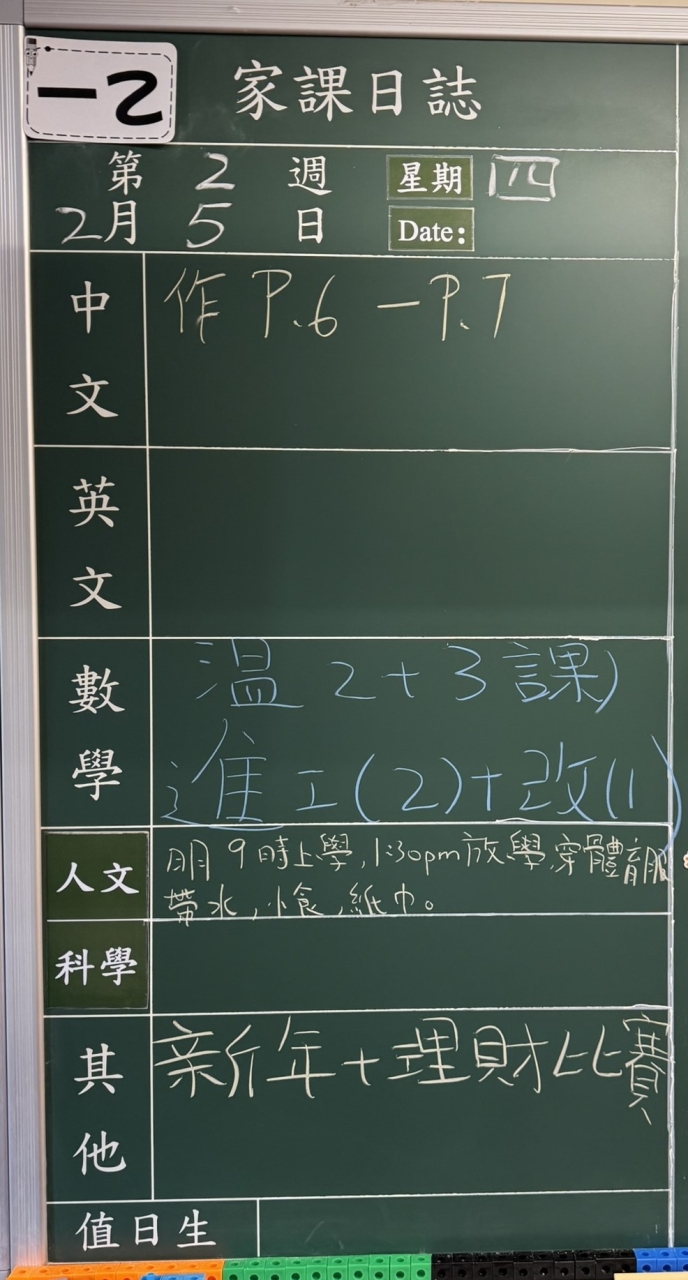 一乙
家課日誌
第 2 週 星期 四
2月 5 日 Date:
中文 作 P.6 — P.7
英文
數學 溫 2+3 課)
進工(2)+改(1)
人文 明 9時上學,1:30pm放學穿體育服
帶水,小食,紙巾。
科學
其他 新年+理財比賽
值日生